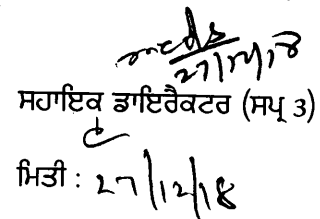 27/12/18
ਸਹਾਇਕ ਡਾਇਰੈਕਟਰ (ਸਪ੍ਰ 3)
ਮਿਤੀ : 27/12/18